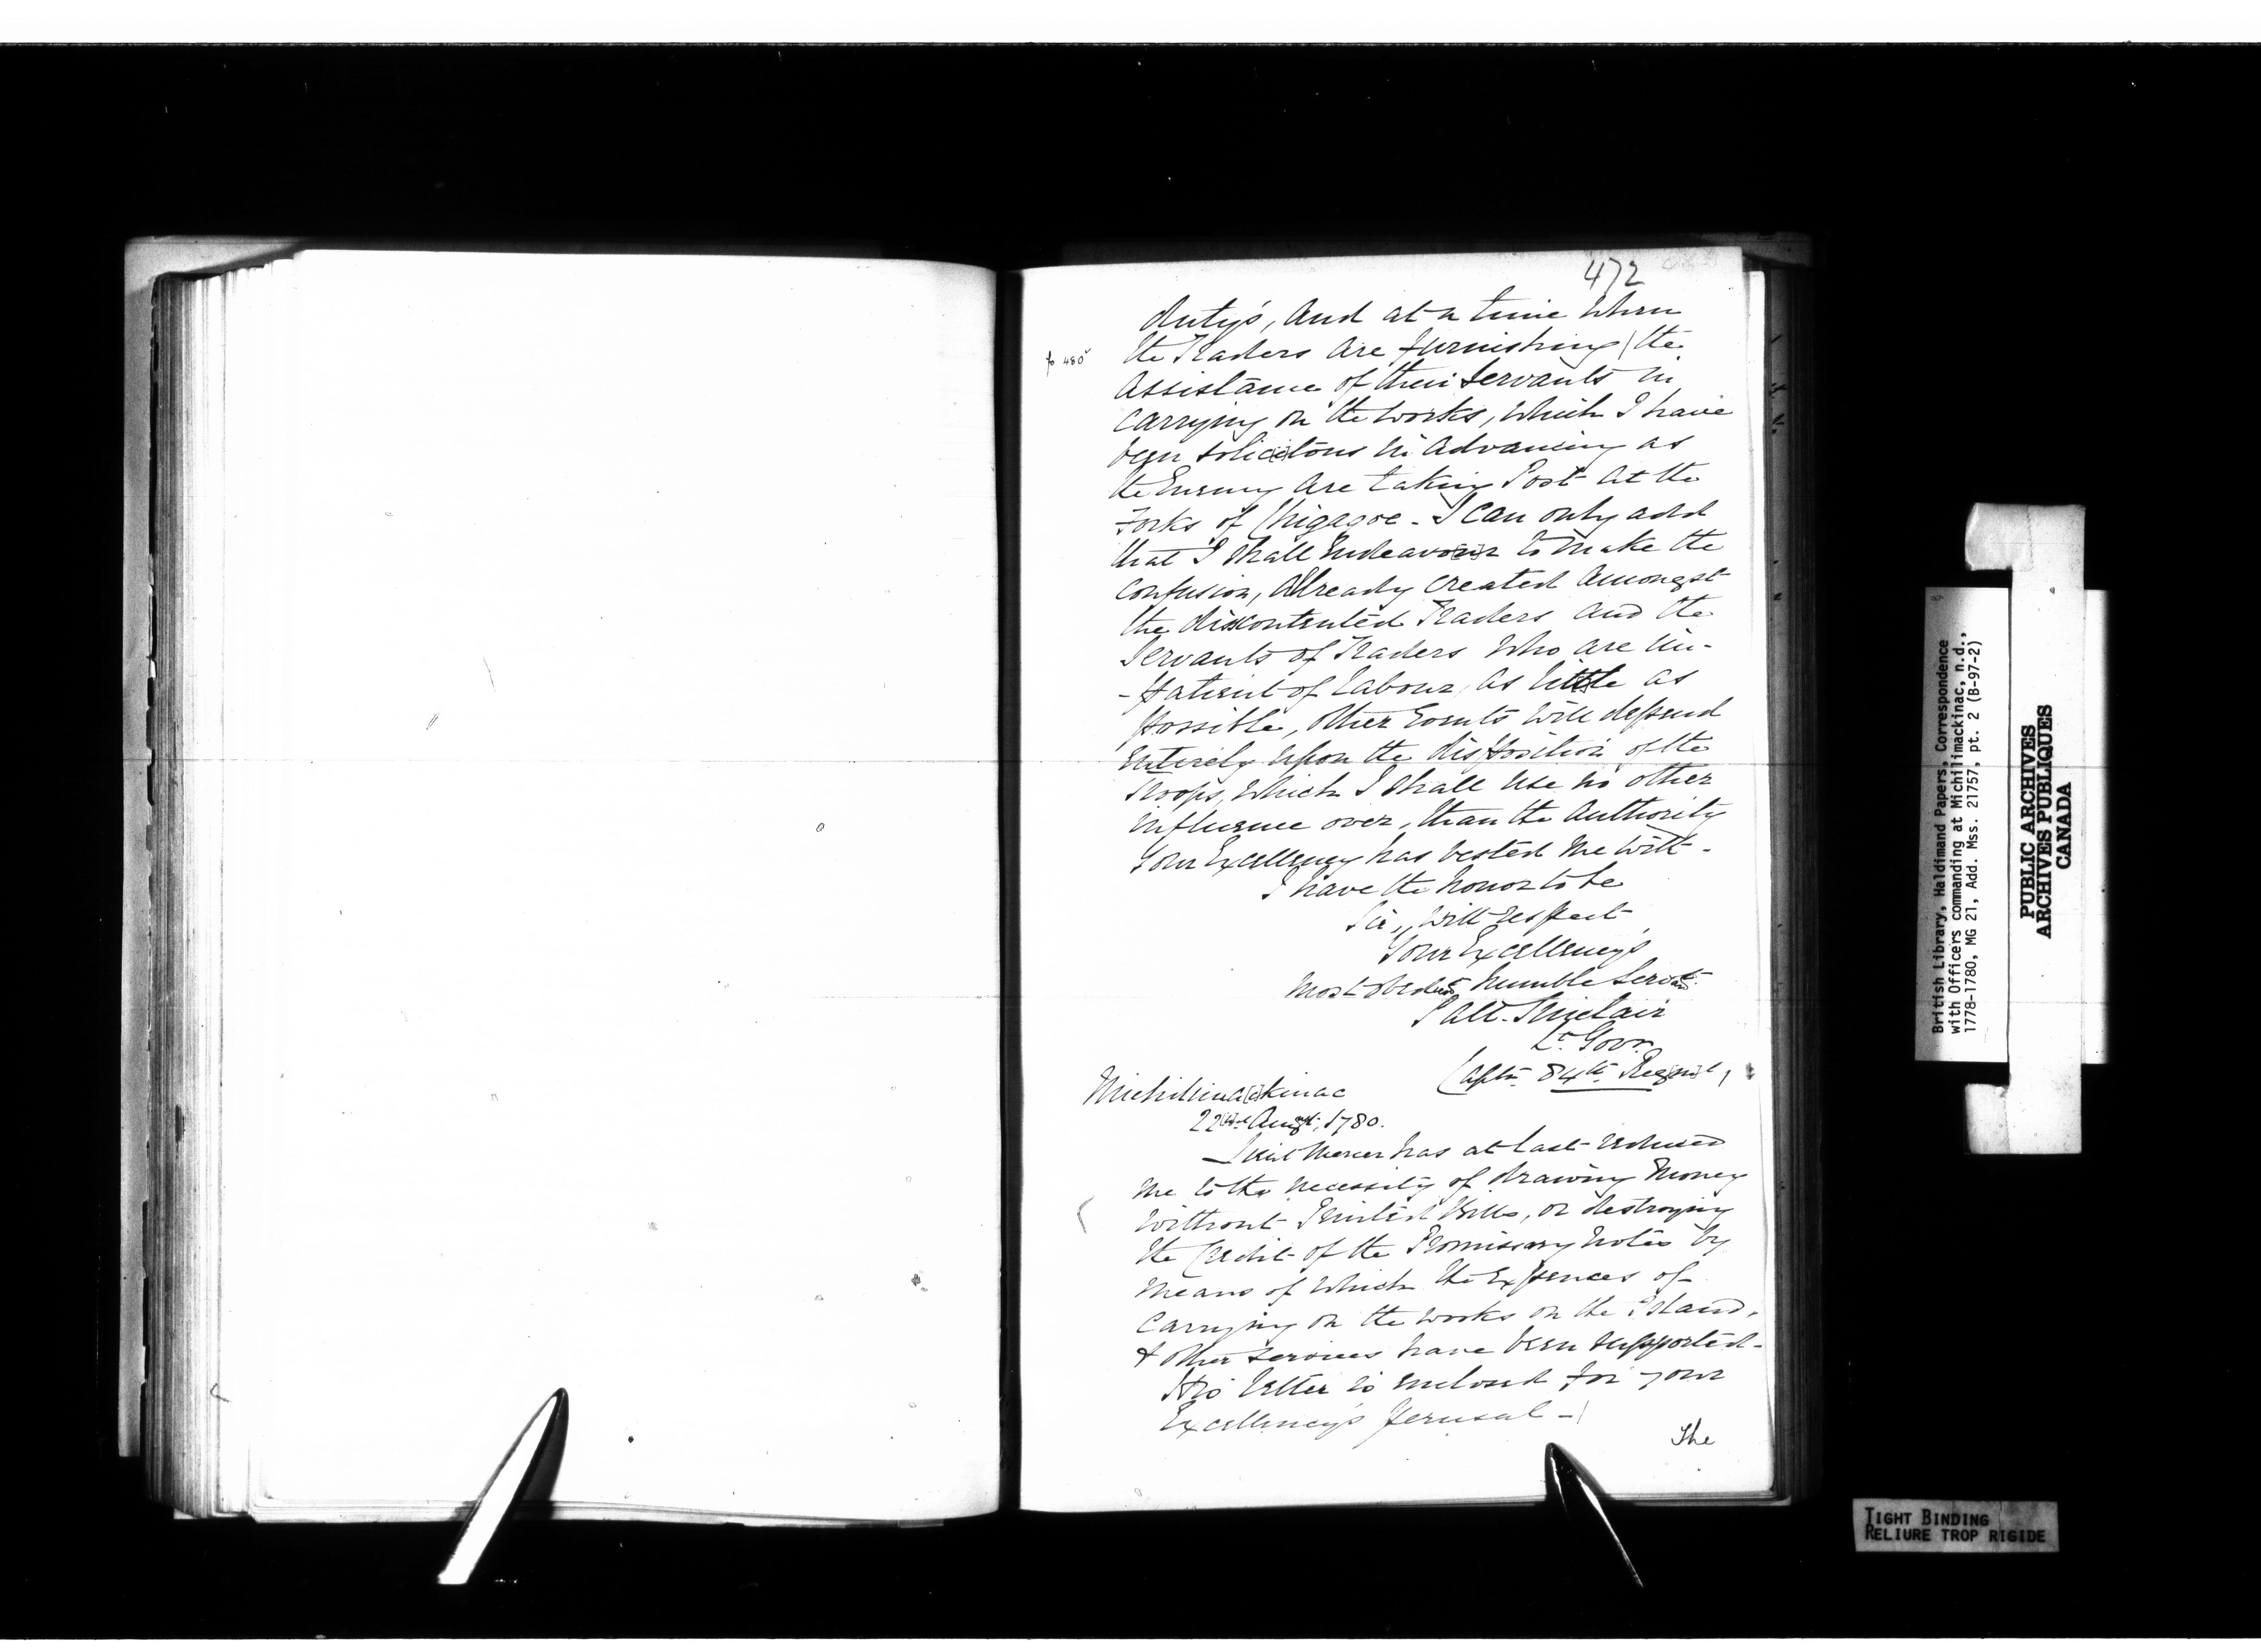 472
duty's, and at a time when
fo 480v
the Traders are furnishing / the
assistance of their Servants in
carrying on the works, which I have
been solicitous in advancing as
the Enemy are taking Post at the
Forks of Chigagoe - I can only add
that I shall Endeavour to make the
confusion, already created amongst
the discontented Traders and the
Servants of Traders who are im-
-patient of labour, as little as
possible, other Events will depend
Entirely upon the disposition of the
Troops, which I shall use no other
influence over, than the Authority
Your Excellency has vested me with -
I have the honor to be
Sir, with respect
Your Excellency's
most obedient humble Servant
Patt. Sinclair
Lt. Govr.
Captn. 84th Regm[en]t,
Michilima[c]kinac
22[n]d Augst, 1780.
Lieut Mercer has at last reduced
me to the necessity of drawing money
without Printed Bills, or destroying
the Credit of the Promissary notes by
means of which the Expences of
carrying on the works on the Island,
& other services have been supported -
His letter is enclosed for your
Excellency's perusal - /
The
British Library, Haldimand Papers, Correspondence
with Officers commanding at Michilimackinac, n.d.,
1778-1780, MG 21, Add. Mss. 21757, pt. 2 (B-97-2)
PUBLIC ARCHIVES
ARCHIVES PUBLIQUES
CANADA
TIGHT BINDING
RELIURE TROP RIGIDE